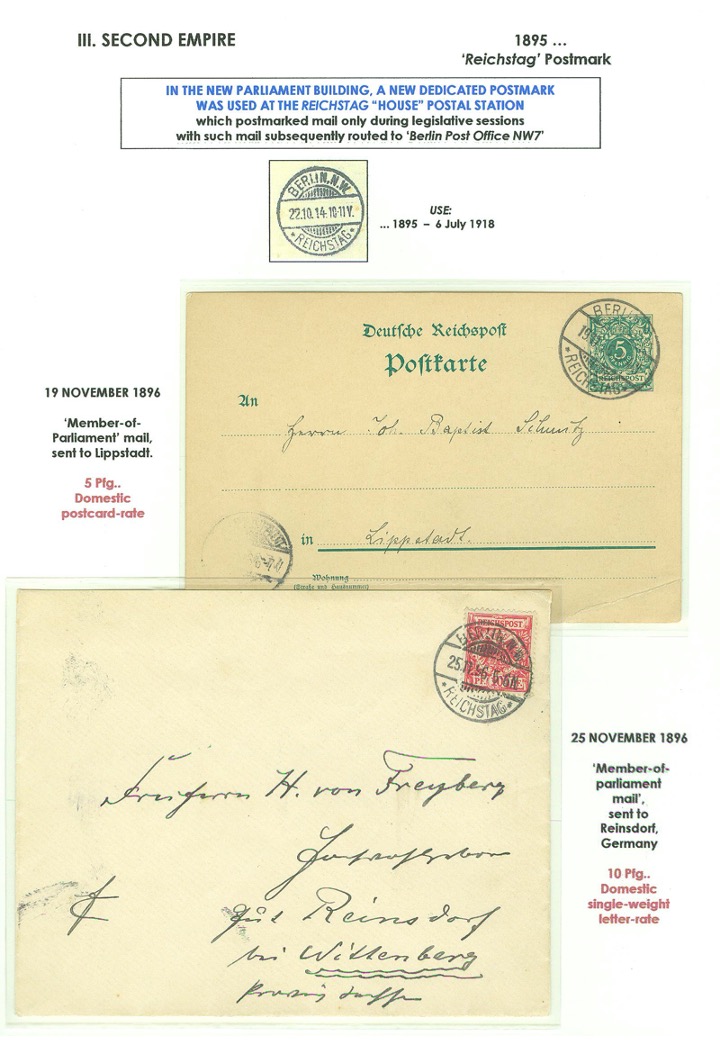 III. SECOND EMPIRE
1895 ...
‘Reichstag’ Postmark
IN THE NEW PARLIAMENT BUILDING, A NEW DEDICATED POSTMARK
WAS USED AT THE REICHSTAG “HOUSE” POSTAL STATION
which postmarked mail only during legislative sessions
with such mail subsequently routed to ‘Berlin Post Office NW7’
BERLIN.N.W.
22.10.14.10-11V.
*REICHSTAG*
USE:
... 1895 – 6 July 1918
19 NOVEMBER 1896
‘Member-of-
Parliament’ mail,
sent to Lippstadt.
5 Pfg..
Domestic
postcard-rate
Deutsche Reichspost
Postkarte
An
Herrn Joh. Baptist Schmitz
in Lippstadt.
Wohnung
(Straße und Hausnummer)
BERLIN
5
REICHSPOST
*REICHSTAG*
REICHSPOST
BERLIN.N.W.
25.11.96
*REICHSTAG*
Freiherrn H. von Freyberg
Hochwohlgeboren
Gut Reinsdorf
bei Wittenberg
Provinz Sachsen
25 NOVEMBER 1896
‘Member-of-
parliament
mail’,
sent to
Reinsdorf,
Germany
10 Pfg..
Domestic
single-weight
letter-rate